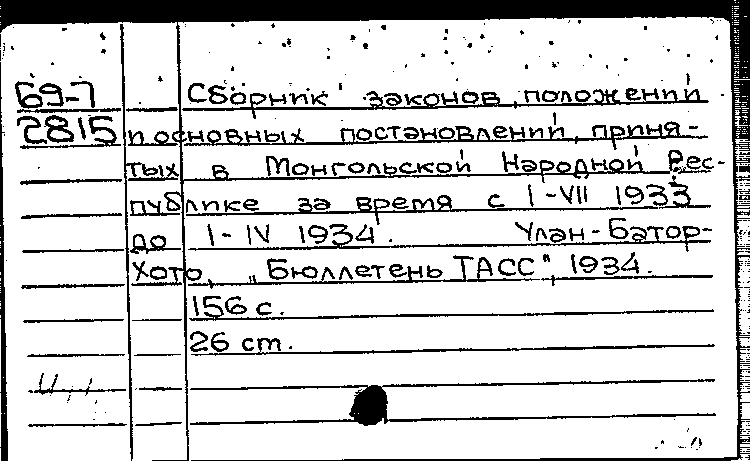 69-7 Сборник законов, положений
2815 и основных постановлений, приня-
тых в Монгольской Народной Рес-
публике за время с I-VII 1933
до I-IV 1934. Улан-Батор-
Хото, „Бюллетень ТАСС", 1934.
156 с.
26 cm.